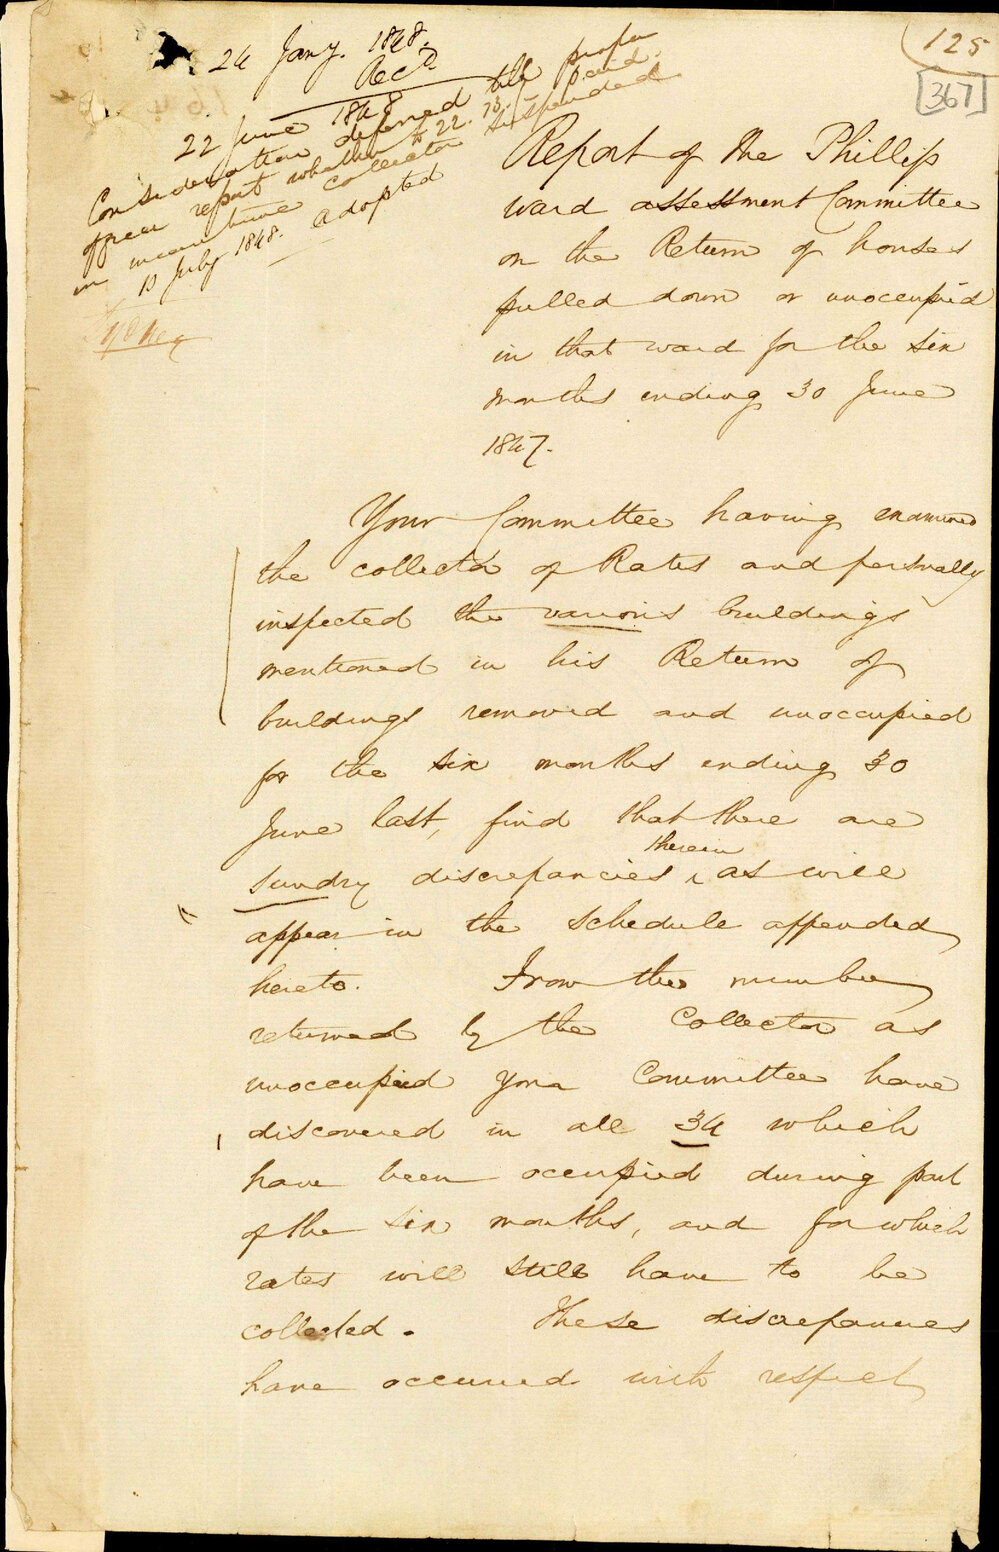 24 Jany. 1848.
Recd
22 June 1848
Consideration deferred till proper
officer report whether £22. 13. paid.
in meantime collector suspended
10 July 1848. adopted
Sydney
125
[367]
Report of the Phillip
ward assessment Committee
on the Return of houses
pulled down or unoccupied
in that ward for the six
months ending 30 June
1847.
Your Committee having examined
the collector of Rates and personally
inspected the various buildings
mentioned in his Return of
buildings removed and unoccupied
for the six months ending 30
June last, find that there are
therein
sundry discrepancies as will
appear in the schedule appended
hereto. From the number
returned by the Collector as
unoccupied your Committee have
discovered in all 34 which
have been occupied during part
of the six months, and for which
rates will still have to be
collected. These discrepancies
have occurred with respect